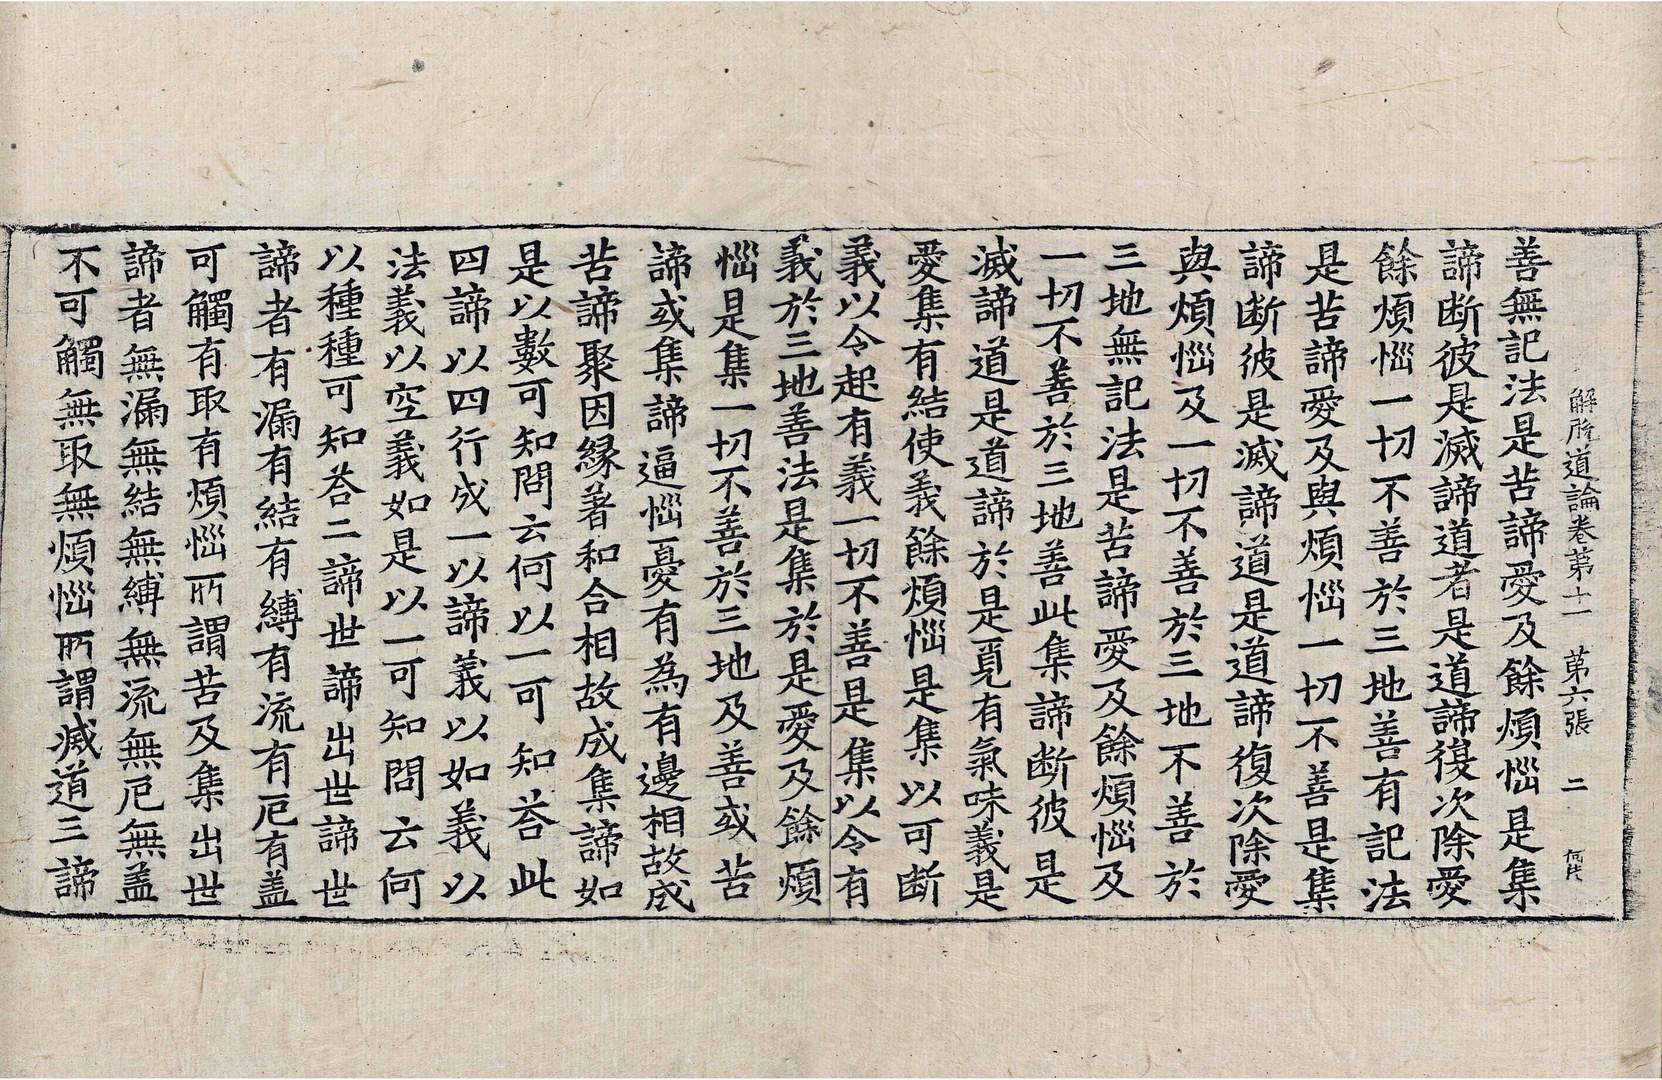 解脫道論卷第十一 第六張 二
善無記法是苦諦愛及餘煩惱是集
諦断彼是滅諦道者是道諦復次除愛
餘煩惱一切不善於三地善有記法
是苦諦愛及與煩惱一切不善是集
諦断彼是滅諦道是道諦復次除愛
與煩惱及一切不善於三地不善於
三地無記法是苦諦愛及餘煩惱及
一切不善於三地善此集諦断彼是
滅諦道是道諦於是覓有氣味義是
愛集有結使義餘煩惱是集以可断
義以令起有義一切不善是集以令有
義於三地善法是集於是愛及餘煩
惱是集一切不善於三地及善或苦
諦或集諦逼惱憂有為有邊相故成
苦諦聚因縁著和合相故成集諦如
是以數可知問云何以一可知荅此
四諦以四行成一以諦義以如義以
法義以空義如是以一可知問云何
以種種可知荅二諦世諦出世諦世
諦者有漏有結有縛有流有厄有盖
可觸有取有煩惱所謂苦及集出世
諦者無漏無結無縛無流無厄無盖
不可觸無取無煩惱所謂滅道三諦